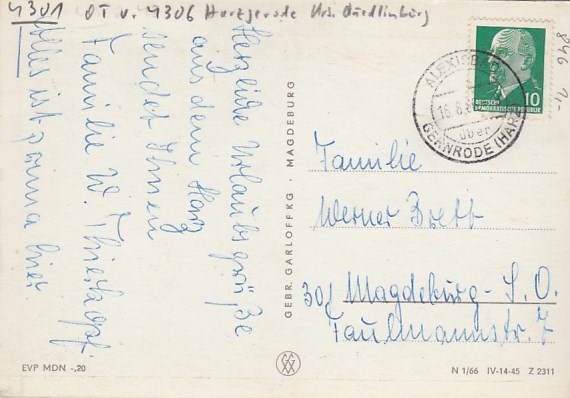 4301 OT v. 4306 Harzgerode Krs. Quedlinburg
846
Herzliche Urlaubsgrüße
aus dem Harz
sendet Ihnen
Familie W. Thierkopf.
Alles ist prima hier.
GEBR. GARLOFF KG · MAGDEBURG
ALEXISBAD
16.8.
über
GERNRODE (HARZ)
DEUTSCHE
DEMOKRATISCHE REPUBLIK
10
Familie
Werner Brett
301 Magdeburg-S.O.
Faulmannstr. 7
EVP MDN -,20
N 1/66 IV-14-45 Z 2311